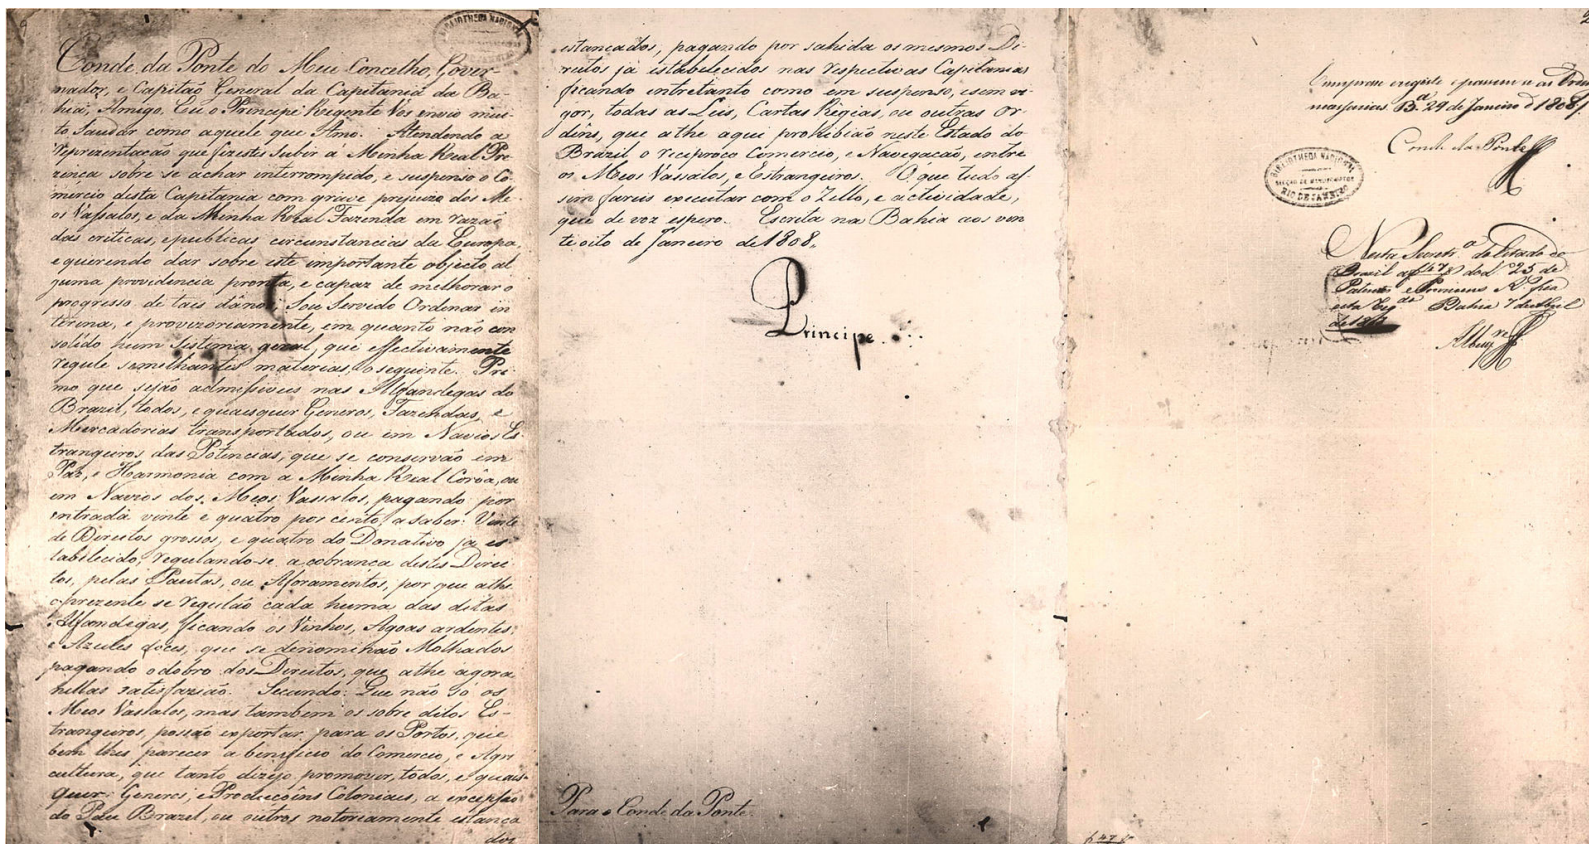 BIBLIOTHECA NACIONAL
Conde da Ponte do Meu Concelho, Gover-
nador, e Capitaõ General da Capitania da Ba-
hia; Amigo. Eu o Principe Regente Vos envio mui-
to Saudar como aquele que Amo. Attendendo a
reprezentacaõ que fizestes subir à Minha Real Pre-
zença sobre se achar interrompido, e suspenso o Co-
mércio desta Capitania com grave prejuizo dos Me-
os Vassalos, e da Minha Real Fazenda em razaõ
das criticas, e publicas circunstancias da Europa,
e querendo dar sobre este importante objecto al
guma providencia pronta, e capaz de melhorar o
progresso de tais dânos: Sou Servido Ordenar in
terina, e provizoriamente, em quanto naõ con
solido hum Sistema geral, que effectivamente
regule semelhantes materias, o seguinte. Pri
mo que sejaõ admissiveis nas Alfandegas do
Brazil, todos, e quaesquer Generos, Fazendas, e
Mercadorias transportados, ou em Navios Es-
trangeiros das Potencias, que se conservaõ em
Paz, e Harmonia com a Minha Real Corôa, ou
em Navios dos Meos Vassalos, pagando por
entrada vinte e quatro por cento, a saber: Vinte
de Direitos grossos, e quatro do Donativo ja es-
tabelecido, regulando-se a cobranca destes Direi
tos, pelas Pautas, ou Aforamentos, por que athe
o prezente se regulaõ cada huma das ditas
Alfandegas, ficando os Vinhos, Agoas ardentes,
e Azeites doces, que se denominaõ Molhados
pagando o dobro dos Direitos, que athe agora
nellas satisfaziaõ. Secundo: Que naõ só os
Meos Vassalos, mas tambem os sobre ditos Es-
trangeiros, possaõ exportar para os Portos, que
bem lhes parecer a beneficio do Comercio, e Agri
cultura, que tanto dezejo promover, todos, e quais-
quer Generos, e Producçoens Coloniaes, a excepsaõ
do Páu Brazil, ou outros notoriamente estanca
dos
estancados, pagando por sahida os mesmos Di-
reitos já estabelecidos nas respectivas Capitanias
ficando entretanto como em suspenso, e sem vi-
gor, todas as Leis, Cartas Régias, ou outras Or-
dens, que athe aqui prohibiaõ neste Estado do
Brazil o reciproco Comercio, e Navegacaõ, entre
os Meos Vassalos, e Estrangeiros. O que tudo as-
sim fareis executar com o Zello, e actividade,
que de voz espero. Escrita na Bahia aos vin
te oito de Janeiro de 1808.
Principe
Para o Conde da Ponte
Cumprase registe e passem se as
29 de Janeiro d 1808.
Conde da Ponte
BIBLIOTHECA NACIONAL
SECÇÃO DE MANUSCRIPTOS
RIO DE JANEIRO
Nesta Secret.ª do Estado do
Brazil a f 47 do L.º 25 de
Patentes e
Bahia 7
f 47